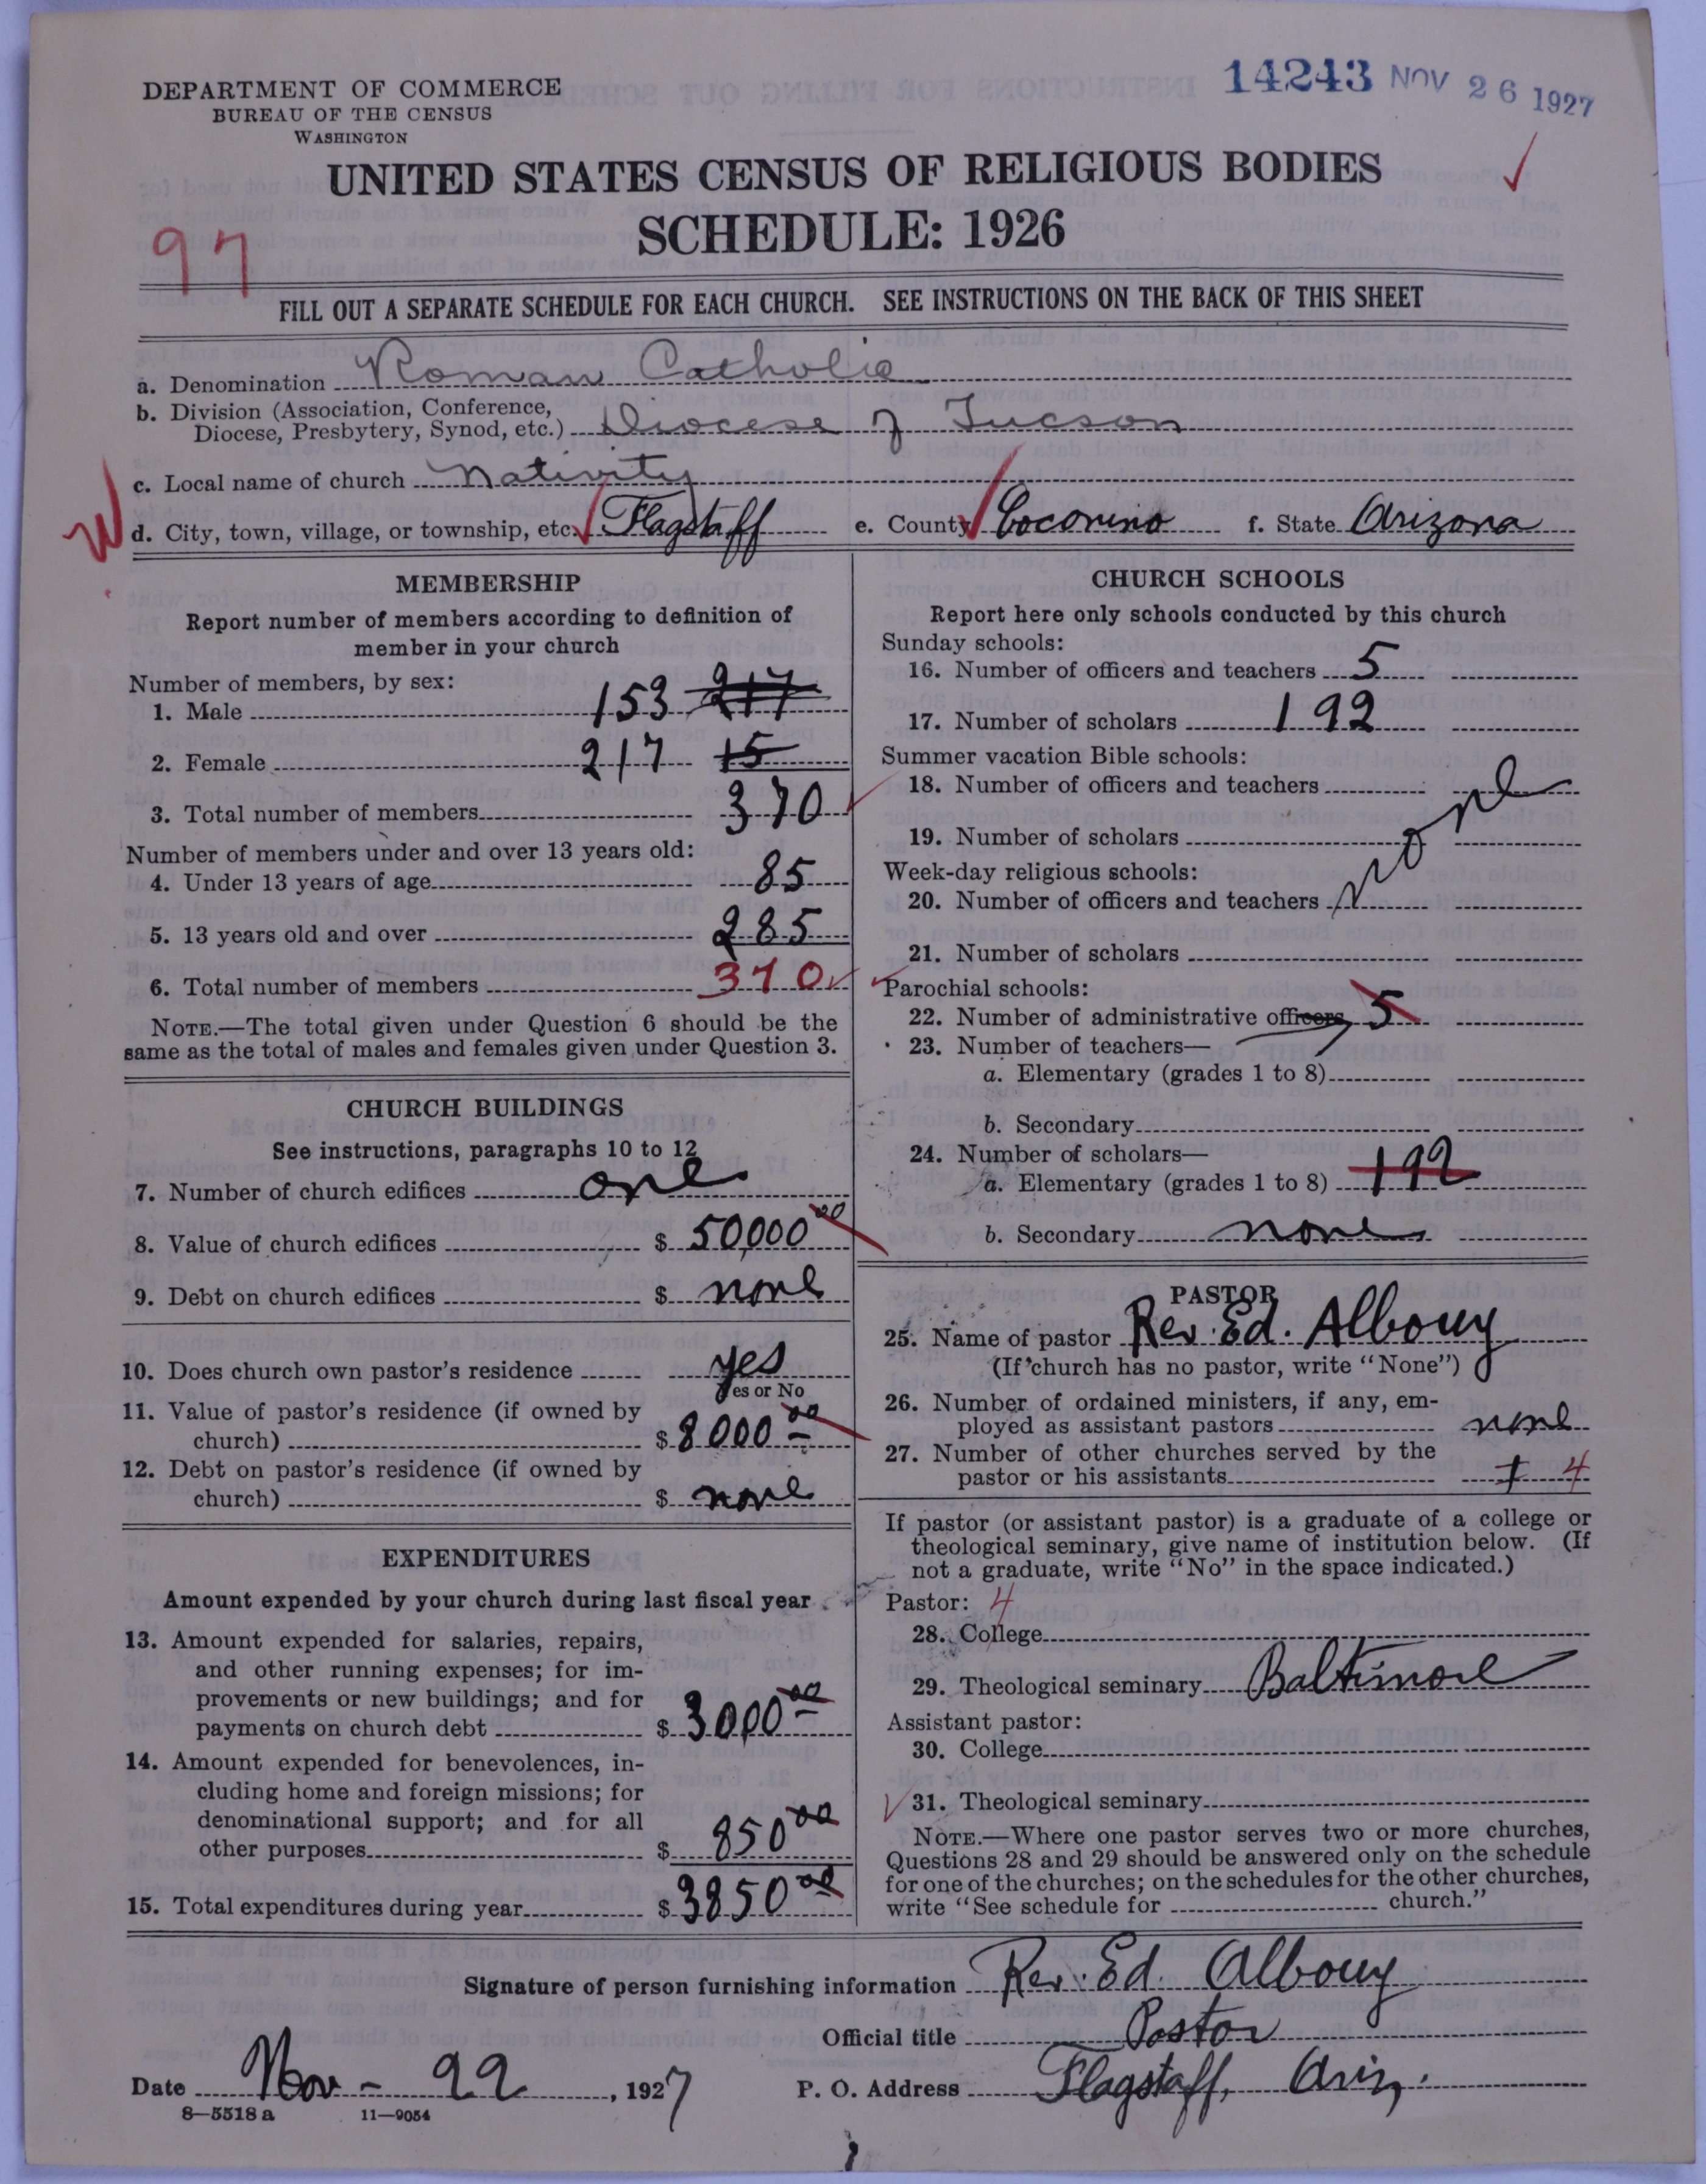 14243 NOV 26 1927
DEPARTMENT OF COMMERCE
BUREAU OF THE CENSUS
WASHINGTON
UNITED STATES CENSUS OF RELIGIOUS BODIES
SCHEDULE: 1926
97
FILL OUT A SEPARATE SCHEDULE FOR EACH CHURCH. SEE INSTRUCTIONS ON THE BACK OF THIS SHEET
a. Denomination Roman Catholic
b. Division (Association, Conference,
Diocese, Presbytery, Synod, etc.) Diocese of Tucson
c. Local name of church Nativity
d. City, town, village, or township, etc. Flagstaff e. County Coconino f. State Arizona
MEMBERSHIP
Report number of members according to definition of
member in your church
Number of members, by sex:
1. Male 153 217
2. Female 217 15
3. Total number of members 370
Number of members under and over 13 years old:
4. Under 13 years of age 85
5. 13 years old and over 285
6. Total number of members 370
NOTE.—The total given under Question 6 should be the
same as the total of males and females given under Question 3.
CHURCH BUILDINGS
See instructions, paragraphs 10 to 12
7. Number of church edifices one
8. Value of church edifices $ 50,000 00
9. Debt on church edifices $ none
10. Does church own pastor's residence yes
Yes or No
11. Value of pastor's residence (if owned by
church) $ 8000 00
12. Debt on pastor's residence (if owned by
church) $ none
EXPENDITURES
Amount expended by your church during last fiscal year
13. Amount expended for salaries, repairs,
and other running expenses; for im-
provements or new buildings; and for
payments on church debt $ 3000 00
14. Amount expended for benevolences, in-
cluding home and foreign missions; for
denominational support; and for all
other purposes $ 850 00
15. Total expenditures during year $ 3850 00
CHURCH SCHOOLS
Report here only schools conducted by this church
Sunday schools:
16. Number of officers and teachers 5
17. Number of scholars 192
Summer vacation Bible schools:
18. Number of officers and teachers
19. Number of scholars
none
Week-day religious schools:
20. Number of officers and teachers
21. Number of scholars
Parochial schools:
22. Number of administrative officers 5
23. Number of teachers—
a. Elementary (grades 1 to 8)
b. Secondary
24. Number of scholars—
a. Elementary (grades 1 to 8) 192
b. Secondary none
PASTOR
25. Name of pastor Rev. Ed. Albouy
(If church has no pastor, write "None")
26. Number of ordained ministers, if any, em-
ployed as assistant pastors none
27. Number of other churches served by the
pastor or his assistants 4
If pastor (or assistant pastor) is a graduate of a college or
theological seminary, give name of institution below. (If
not a graduate, write "No" in the space indicated.)
Pastor: 4
28. College
29. Theological seminary Baltimore
Assistant pastor:
30. College
31. Theological seminary
NOTE.—Where one pastor serves two or more churches,
Questions 28 and 29 should be answered only on the schedule
for one of the churches; on the schedules for the other churches,
write "See schedule for church."
Signature of person furnishing information Rev. Ed. Albouy
Official title Pastor
Date Nov - 22, 1927 P. O. Address Flagstaff, Ariz.
8—5518 a 11—9054